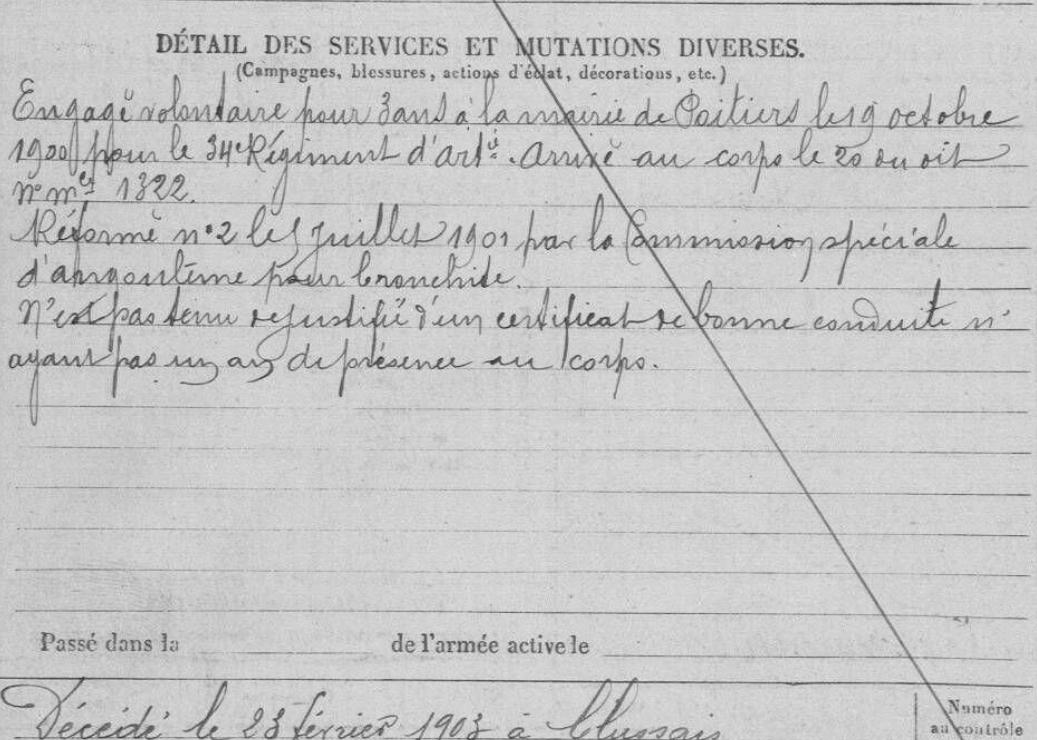 DÉTAIL DES SERVICES ET MUTATIONS DIVERSES.
(Campagnes, blessures, actions d'éclat, décorations, etc.)
Engagé volontaire pour 3 ans à la mairie de Poitiers le 19 octobre
1900 pour le 34e Régiment d'artie. Arrivé au corps le 20 du dit
n° mle 1322.
Réformé n°2 le 5 juillet 1901 par la Commission spéciale
d'angoulême pour bronchite.
N'est pas tenu de justifié d'un certificat de bonne conduite n'
ayant pas un an de présence au corps.
Passé dans la de l'armée active le
Décédé le 23 février 1903 à Clussais
Numéro
au contrôle